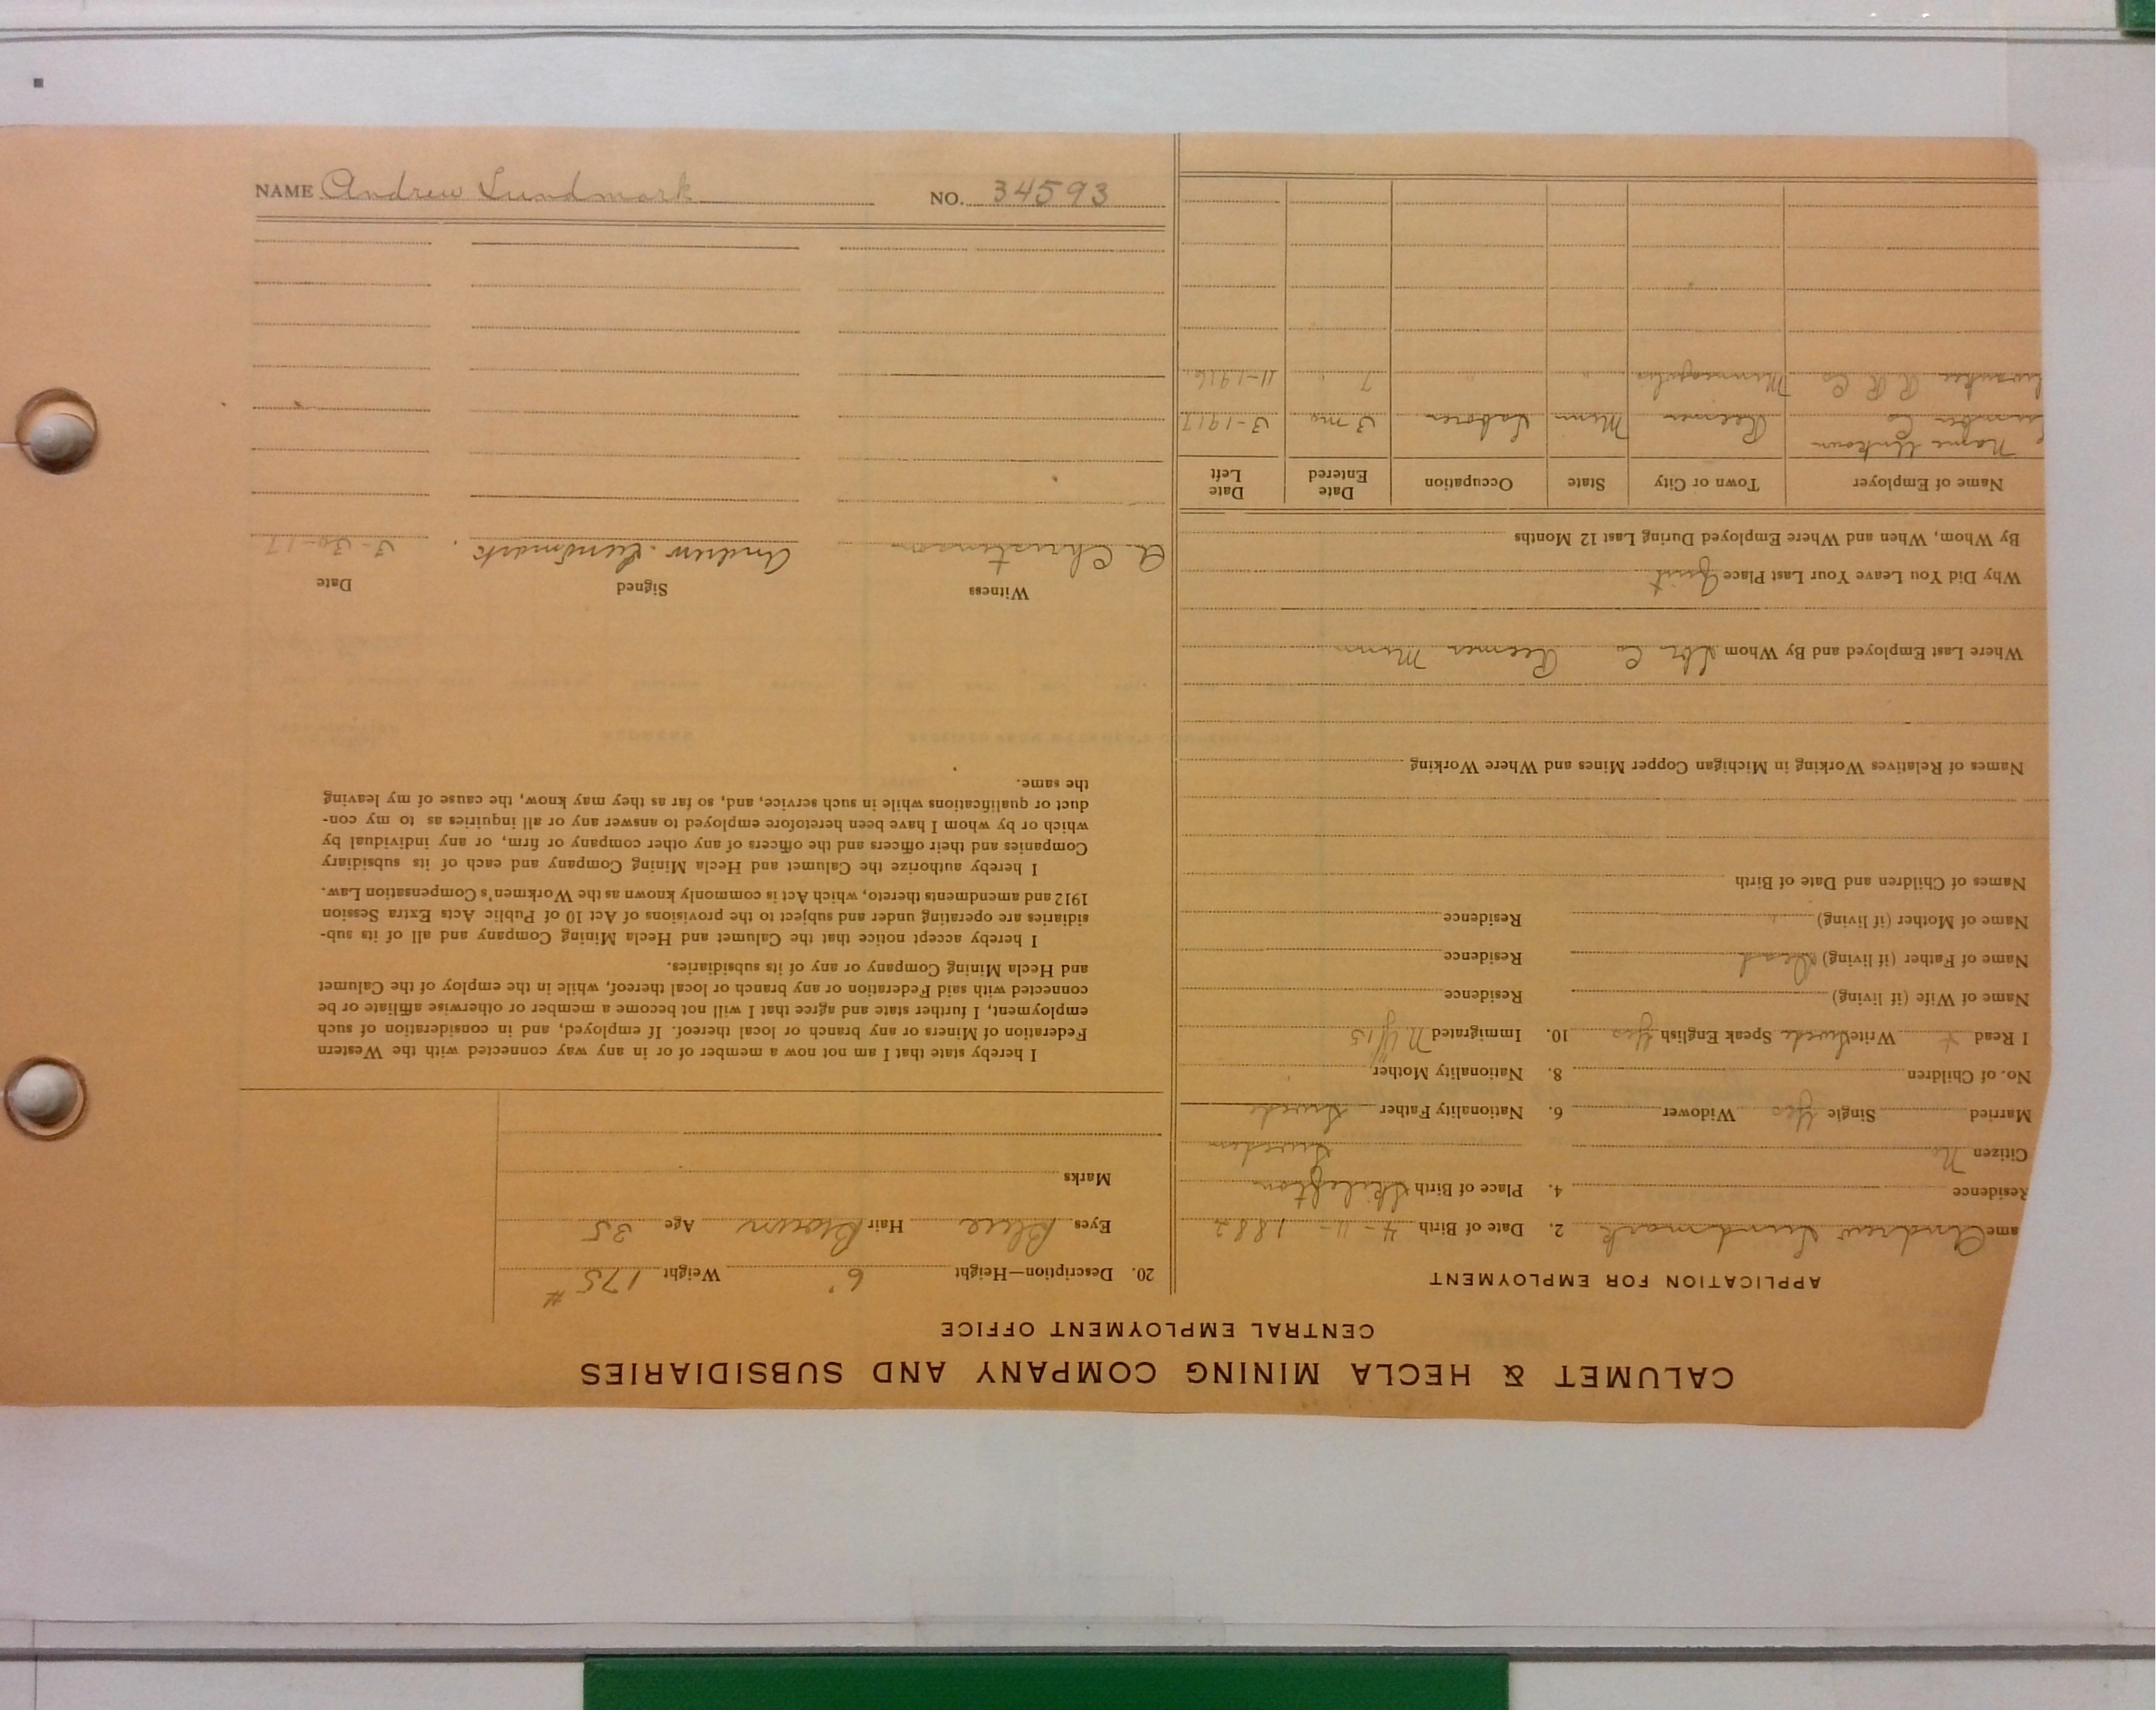 NAME Andrew Lundmark NO. 34593
CALUMET & HECLA MINING COMPANY AND SUBSIDIARIES
CENTRAL EMPLOYMENT OFFICE
APPLICATION FOR EMPLOYMENT
ame Andrew Lundmark 2. Date of Birth 4-11-1882
Residence 4. Place of Birth
Citizen No Sweden
Married Single Yes Widower 6. Nationality Father Swede
No. of Children 8. Nationality Mother "
I Read + Write Swede Speak English Yes 10. Immigrated NY 15
Name of Wife (if living) Residence
Name of Father (if living) Dead Residence
Name of Mother (if living) Residence
Names of Children and Date of Birth
Names of Relatives Working in Michigan Copper Mines and Where Working
Where Last Employed and By Whom Lbr Co Remer Minn
Why Did You Leave Your Last Place Quit
By Whom, When and Where Employed During Last 12 Months
Name of Employer Town or City State Occupation Date Entered Date Left
Name Unknown
Lumber Co Remer Minn Laborer 3 mo 3-1917
R R Co Minneapolis " " 7 " 11-1916
20. Description—Height 6' Weight 175#
Eyes Blue Hair Brown Age 35
Marks
I hereby state that I am not now a member of or in any way connected with the Western
Federation of Miners or any branch or local thereof. If employed, and in consideration of such
employment, I further state and agree that I will not become a member or otherwise affiliate or be
connected with said Federation or any branch or local thereof, while in the employ of the Calumet
and Hecla Mining Company or any of its subsidiaries.
I hereby accept notice that the Calumet and Hecla Mining Company and all of its sub-
sidiaries are operating under and subject to the provisions of Act 10 of Public Acts Extra Session
1912 and amendments thereto, which Act is commonly known as the Workmen's Compensation Law.
I hereby authorize the Calumet and Hecla Mining Company and each of its subsidiary
Companies and their officers and the officers of any other company or firm, or any individual by
which or by whom I have been heretofore employed to answer any or all inquiries as to my con-
duct or qualifications while in such service, and, so far as they may know, the cause of my leaving
the same.
Witness Signed Date
A Christenson Andrew Lundmark. 3-30-17